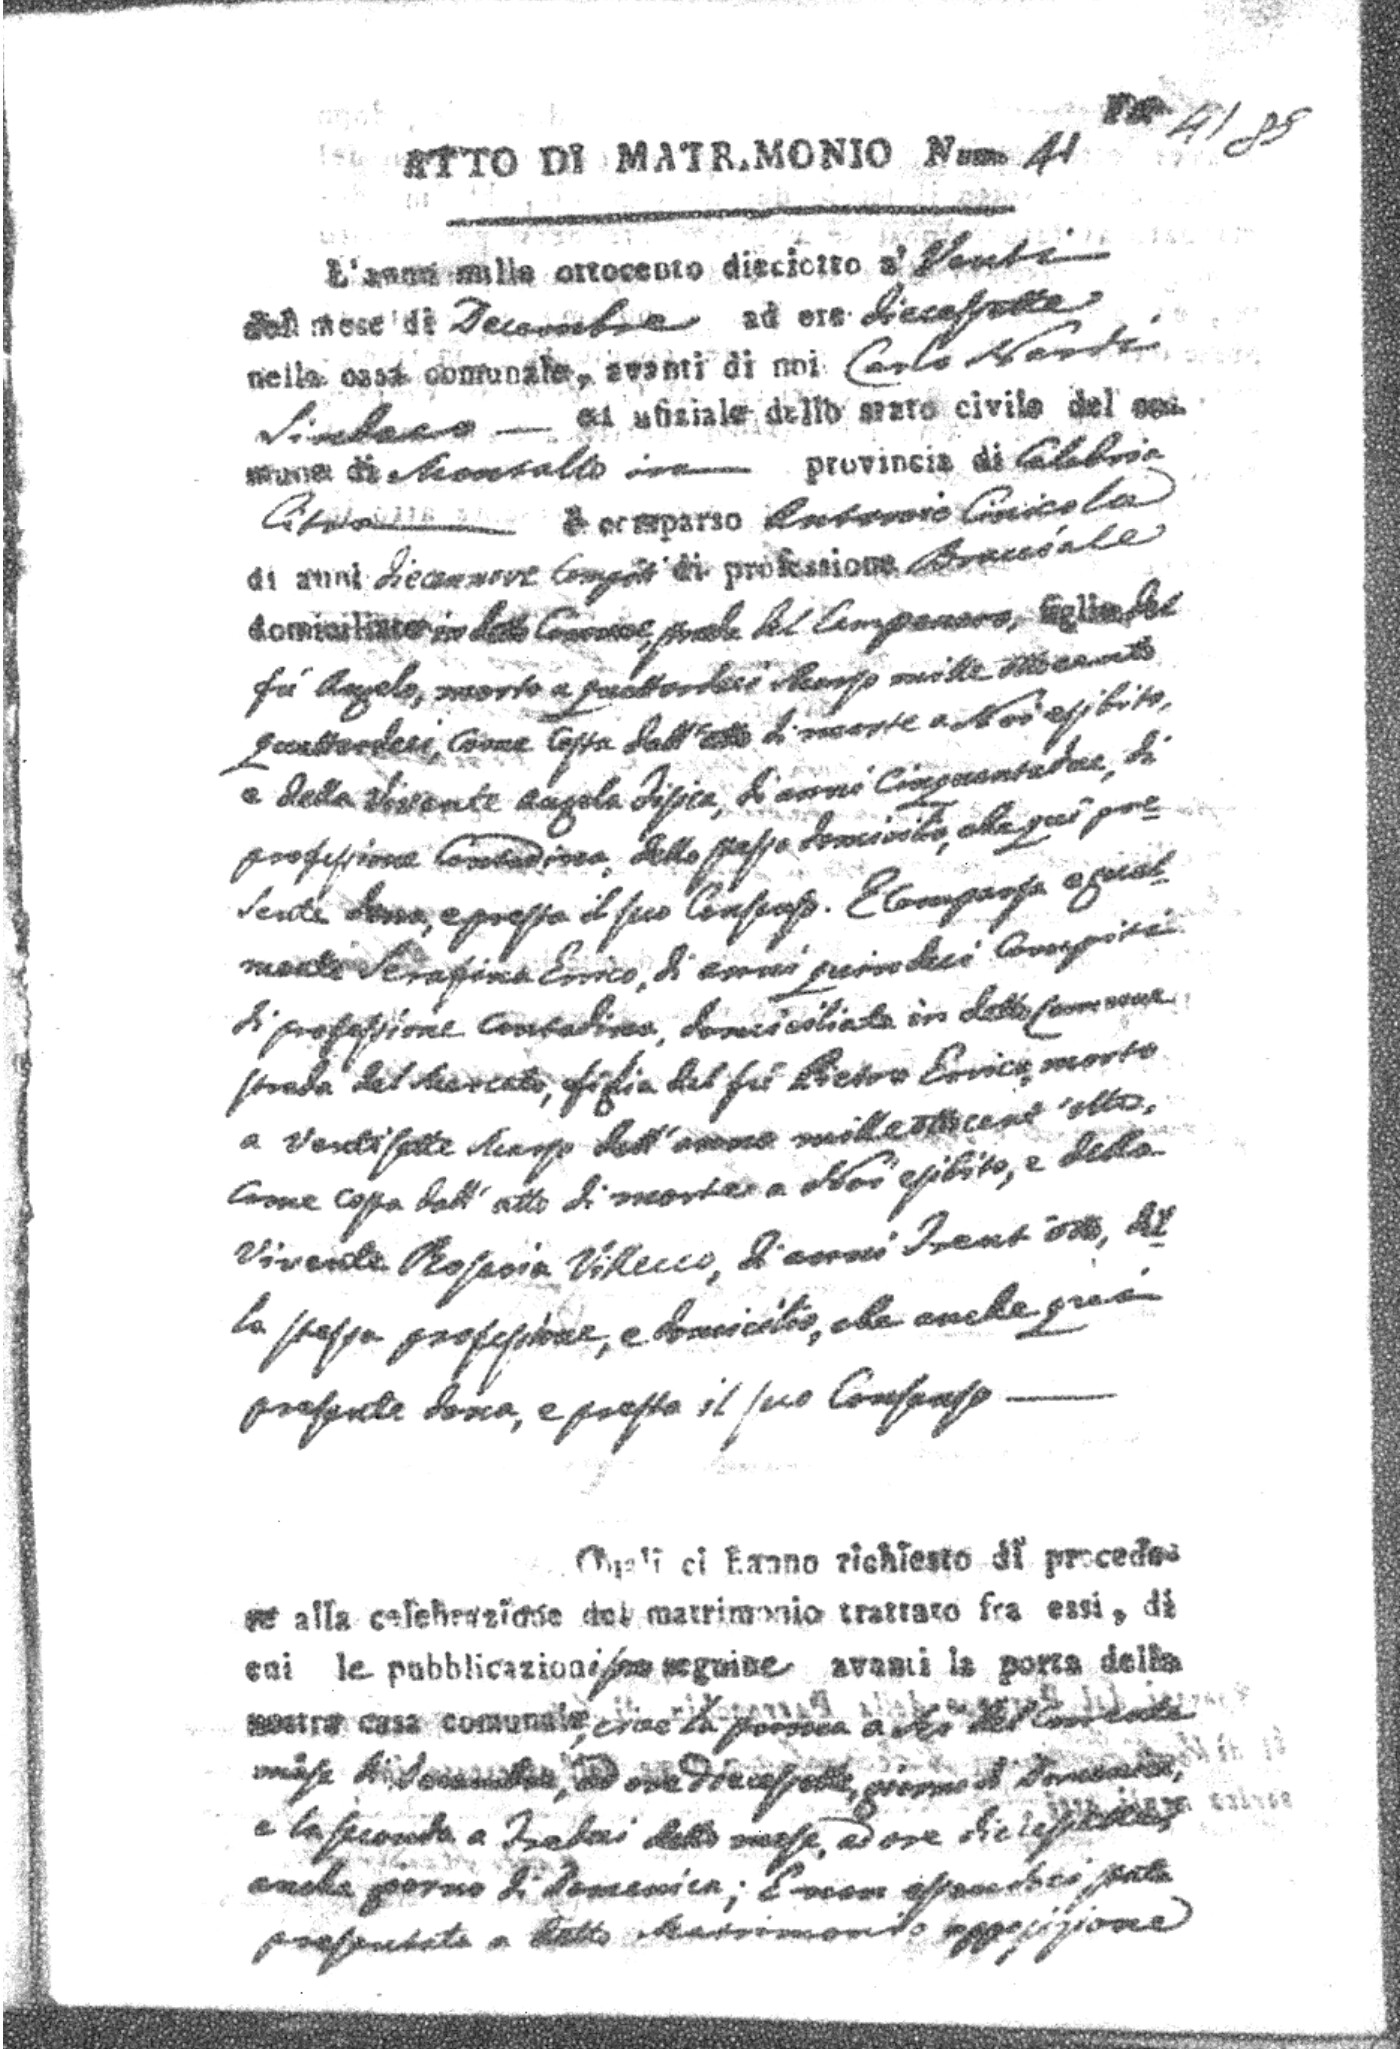 41 89
ATTO DI MATR.MONIO Num. 41
L'anno mille ottocento dieciotto a' Venti
del mese di Decembre ad ore diecessette
nella casa comunale, avanti di noi Carlo Nardi
Sindaco ed ufiziale dello stato civile del co-
mune di Montalto provincia di Calabria
Citra è comparso Antonio Cinicola
di anni diecennove compiti di professione Bracciale
domiciliato in detto Comune, strada del Campanaro, figlio del
fù Angelo, morto a quattordeci Marzo mille ottocento
quattordeci, come costa dall'atto di morte a Noi esibito,
e della vivente Angela, di anni Cinquantadue, di
professione Contadina, dello stesso domicilio, che quì pre=
sente dona, e presta il suo Consenso. E comparsa egual=
mente Serafina Errico, di anni quindeci compiti
di professione Contadina, domiciliata in detto Comune
strada del Mercato, figlia del fù Pietro Errico, morto
a ventisette Marzo dell'anno mille ottocent'otto,
come costa dall'atto di morte a Noi esibito, e della
vivente Rosaria Villecco, di anni Trent'otto, del=
la stessa professione, e domicilio, che anche quì
presente dona, e presta il suo Consenso
Quali ci hanno richiesto di procede-
re alla celebrazione del matrimonio trattato fra essi, di
cui le pubblicazioni seguite avanti la porta della
nostra casa comunale, cioè la prima a sei del corrente
mese di Decembre, ad ore diecessette, giorno di Domenica,
e la seconda a Tredeci detto mese, ad ore diecessette,
anche giorno di Domenica; E non essendoci stata
presentata a detto Matrimonio opposizione